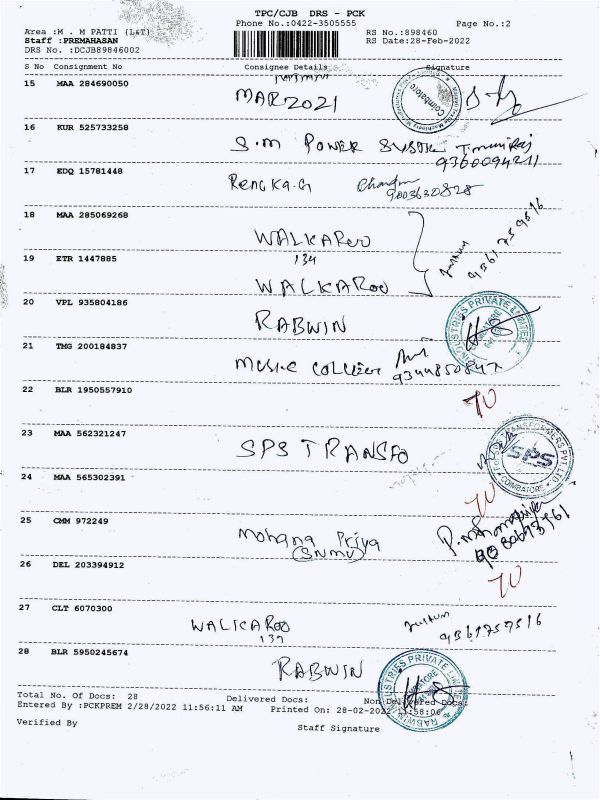 TPC/CJB DRS - PCK
Phone No.:0422-3505555
Page No.:2
Area :M . M PATTI (L&T)
RS No.:898460
Staff : PREMAHASAN
RS Date:28-Feb-2022
DRS No. :DCJB89846002
S No Consignment No Consignee Details Signature
15 MAA 284690050
MAR 2021
Coimbatore
16 KUR 525733258
S.M POWER
9360094211
17 EDQ 15781448
RENGKA.G
9003630828
18 MAA 285069268
WALKAROO
134
19 ETR 1447885
WALKAROO
9361759516
20 VPL 935804186
RABWIN
INDUSTRIES PRIVATE LIMITED
COIMBATORE
21 TMG 200184837
MUSIC
9344850847
22 BLR 1950557910
23 MAA 562321247
SPS TRANSFO
SPS TRANSFORMERS PVT. LTD.
SPS
COIMBATORE
24 MAA 565302391
25 CMM 972249
Mohana Priya
(SNMV)
26 DEL 203394912
27 CLT 6070300
WALKAROO
9361757516
28 BLR 5950245674
RABWIN
RABWIN INDUSTRIES PRIVATE LIMITED
COIMBATORE
Total No. Of Docs: 28 Delivered Docs: Non Delivered Docs:
Entered By :PCKPREM 2/28/2022 11:56:11 AM Printed On: 28-02-2022 11:58:06
Verified By Staff Signature